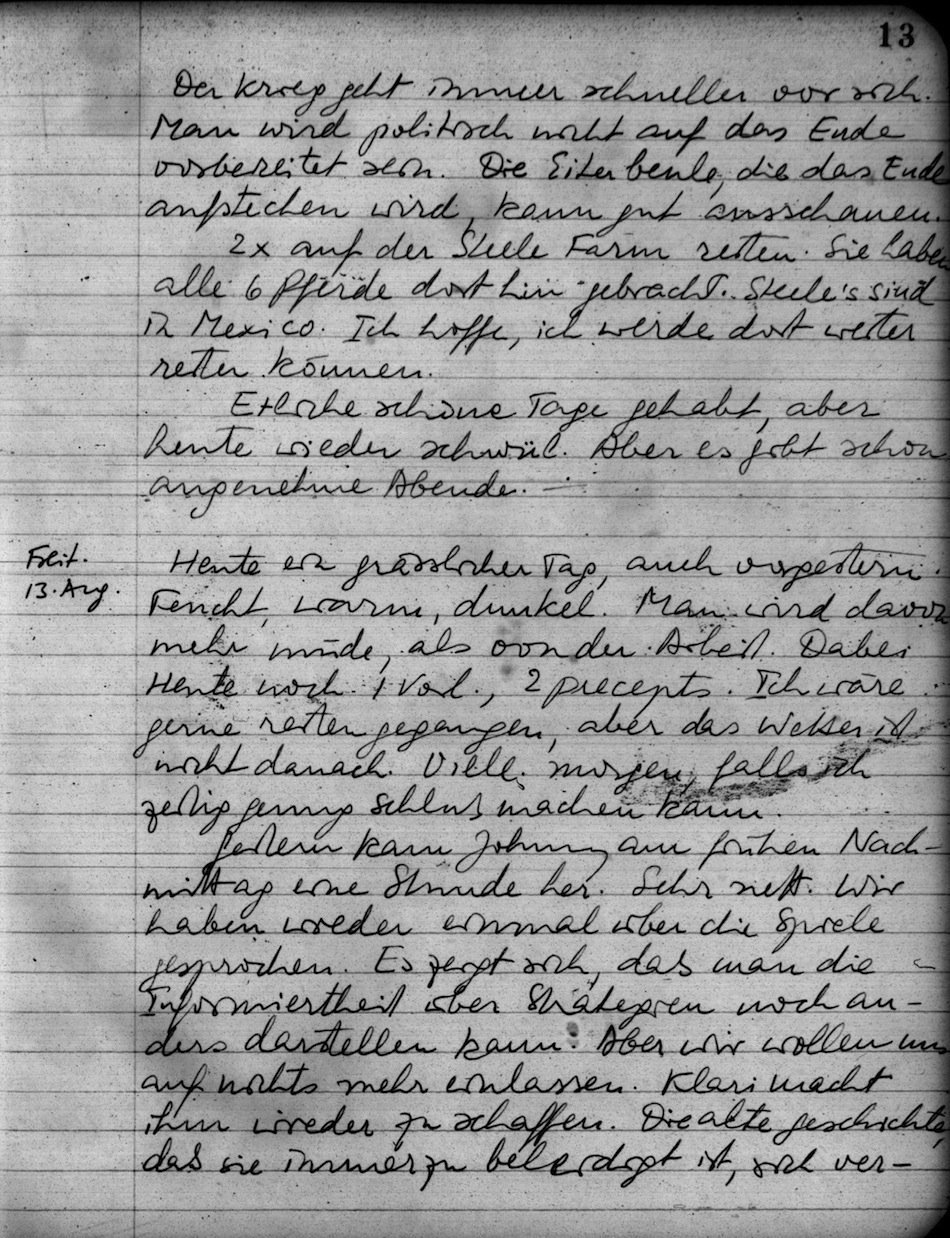 13
Der Krieg geht immer schneller vor sich.
Man wird politisch nicht auf das Ende
vorbereitet sein. Die Eiterbeule, die das Ende
aufstechen wird, kann gut ausschauen.
2x auf der Steele Farm reiten. Sie haben
alle 6 Pferde dorthin gebracht. Steele's sind
in Mexico. Ich hoffe, ich werde dort weiter
reiten können.
Etliche schöne Tage gehabt, aber
heute wieder schwül. Aber es gibt schon
angenehme Abende. —
Freit.
13. Aug.
Heute ein grässlicher Tag, auch vorgestern.
Feucht, warm, dunkel. Man wird davon
mehr müde, als von der Arbeit. Dabei
Heute noch 1 Vorl., 2 precepts. Ich wäre
gerne reiten gegangen, aber das Wetter ist
nicht danach. Viell. morgen, falls ich
zeitig genug Schluß machen kann.
Gestern kam Johnny am frühen Nach-
mittag eine Stunde her. Sehr nett. Wir
haben wieder einmal über die Spiele
gesprochen. Es zeigt sich, daß man die
Informiertheit über Strategien noch an-
ders darstellen kann. Aber wir wollen uns
auf nichts mehr einlassen. Klari macht
ihm wieder zu schaffen. Die alte Geschichte,
daß sie immerzu beleidigt ist, sich ver-